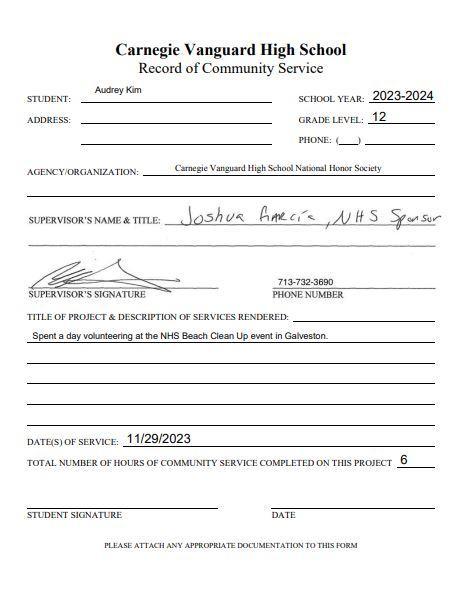 Carnegie Vanguard High School
Record of Community Service
STUDENT: Audrey Kim SCHOOL YEAR: 2023-2024
ADDRESS: GRADE LEVEL: 12
PHONE: (___)
AGENCY/ORGANIZATION: Carnegie Vanguard High School National Honor Society
SUPERVISOR'S NAME & TITLE: Joshua Garcia, NHS Sponsor
SUPERVISOR'S SIGNATURE
713-732-3690
PHONE NUMBER
TITLE OF PROJECT & DESCRIPTION OF SERVICES RENDERED:
Spent a day volunteering at the NHS Beach Clean Up event in Galveston.
DATE(S) OF SERVICE: 11/29/2023
TOTAL NUMBER OF HOURS OF COMMUNITY SERVICE COMPLETED ON THIS PROJECT 6
STUDENT SIGNATURE DATE
PLEASE ATTACH ANY APPROPRIATE DOCUMENTATION TO THIS FORM